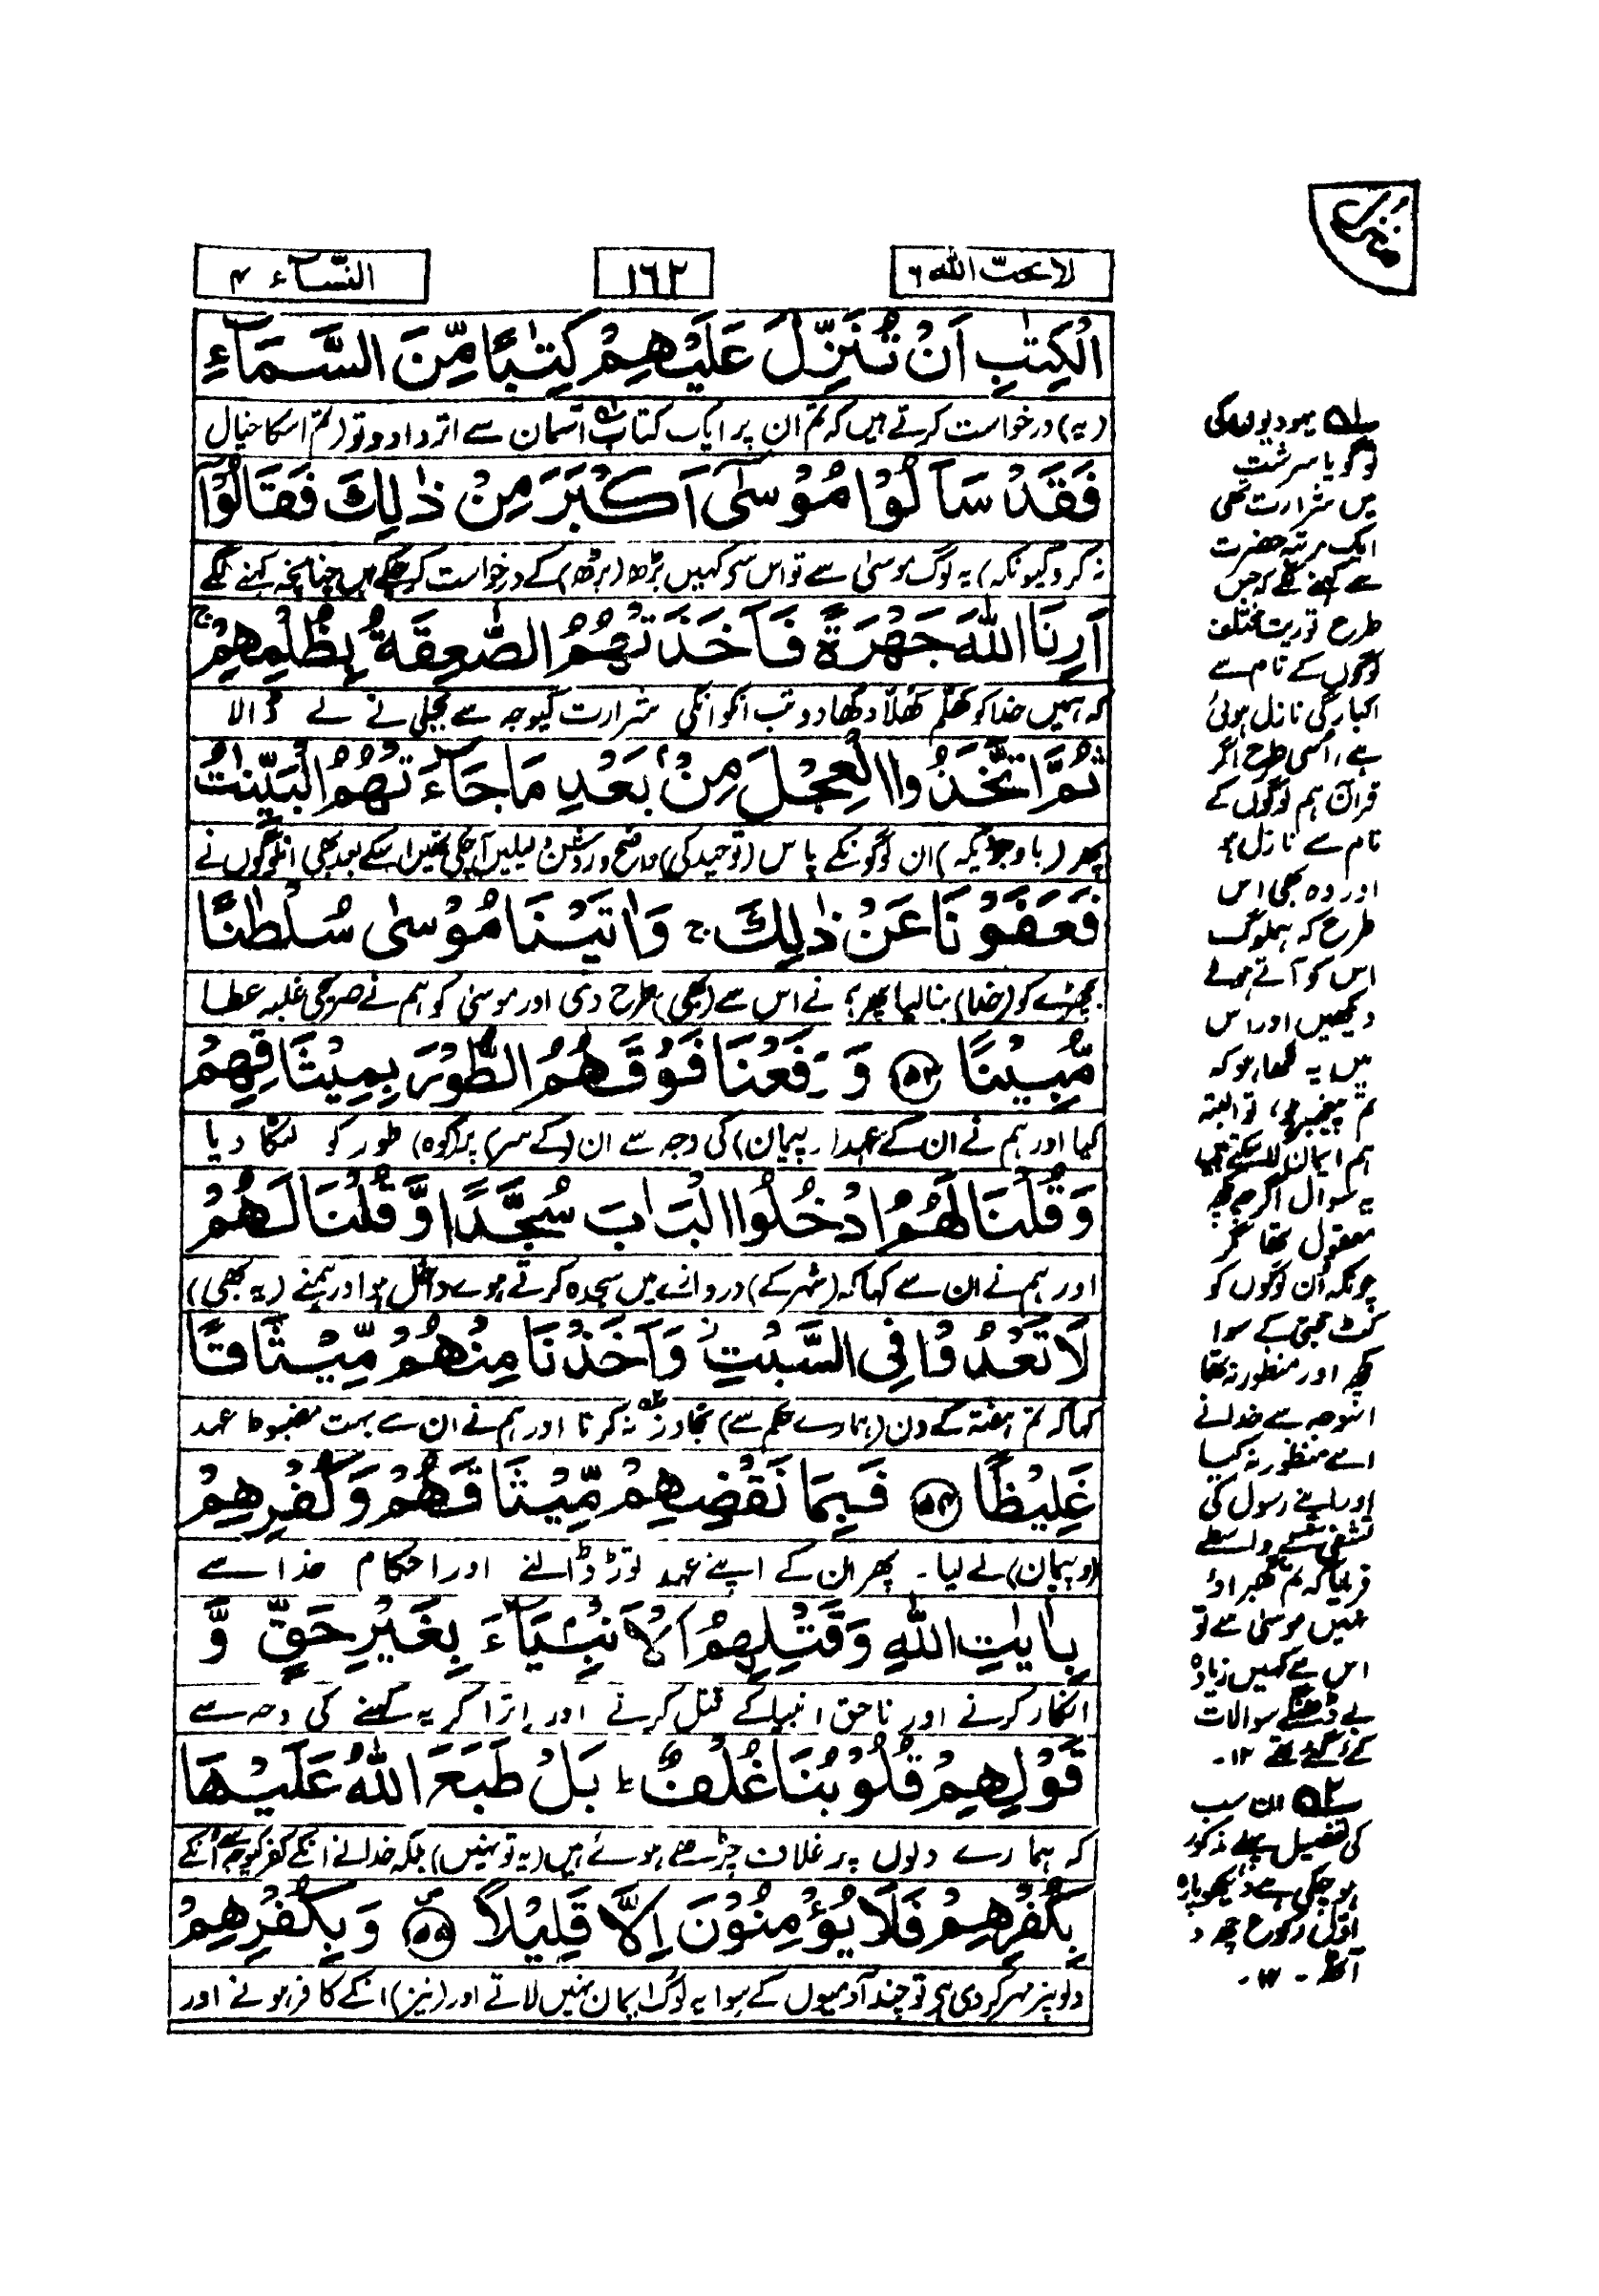 منزل
لا یحبّ اللہ ۶
۱۶۲
النّسآء ۴
الْكِتٰبِ اَنْ تُنَزِّلَ عَلَيْهِمْ كِتٰبًا مِّنَ السَّمَآءِ
(یہ) درخواست کرتے ہیں کہ تم ان پر ایک کتاب آسمان سے اتروا دو تو (تم اسکا خیال
فَقَدْ سَاَلُوْا مُوْسٰٓى اَكْبَرَ مِنْ ذٰلِكَ فَقَالُوْٓا
نہ کرو کیونکہ) یہ لوگ موسیٰ سے تو اس سو کہیں بڑھ (بڑھ) کے درخواست کر چکے ہیں چنانچہ کہنے لگے
اَرِنَا اللّٰهَ جَهْرَةً فَاَخَذَتْهُمُ الصّٰعِقَةُ بِظُلْمِهِمْ ج
کہ ہمیں خدا کو کھلم کھلا دکھا دو تب انکو انکی شرارت کیوجہ سے بجلی نے لے ڈالا
ثُمَّ اتَّخَذُوا الْعِجْلَ مِنْۢ بَعْدِ مَا جَآءَتْهُمُ الْبَيِّنٰتُ
پھر (باوجودیکہ) ان لوگونکے پاس (توحید کی) واضح و روشن دلیلیں آچکی تھیں اسکے بعد بھی ان لوگوں نے
فَعَفَوْنَا عَنْ ذٰلِكَ ج وَاٰتَيْنَا مُوْسٰى سُلْطٰنًا
بچھڑے کو (خدا) بنا لیا پھر ہم نے اس سے (بھی) طرح دی اور موسیٰ کو ہم نے صریحی غلبہ عطا
مُّبِيْنًا ۱۵۳ وَرَفَعْنَا فَوْقَهُمُ الطُّوْرَ بِمِيْثَاقِهِمْ
کیا اور ہم نے ان کے عہد (و پیمان) کی وجہ سے ان (کے سر) پر (کوہ) طور کو لٹکا دیا
وَقُلْنَا لَهُمُ ادْخُلُوا الْبَابَ سُجَّدًا وَّقُلْنَا لَهُمْ
اور ہم نے ان سے کہا کہ (شہر کے) دروازے میں سجدہ کرتے ہوے داخل ہو اور ہمنے (یہ بھی)
لَا تَعْدُوْا فِى السَّبْتِ وَاَخَذْنَا مِنْهُمْ مِّيْثَاقًا
کہا کہ تم ہفتہ کے دن (ہمارے حکم سے) تجاوز نہ کرنا اور ہم نے ان سے بہت مضبوط عہد
غَلِيْظًا ۱۵۴ فَبِمَا نَقْضِهِمْ مِّيْثَاقَهُمْ وَكُفْرِهِمْ
(و پیمان) لے لیا ۔ پھر ان کے اپنے عہد توڑ ڈالنے اور احکام خدا سے
بِاٰيٰتِ اللّٰهِ وَقَتْلِهِمُ الْاَنْۢبِيَآءَ بِغَيْرِ حَقٍّ وَّ
انکار کرنے اور ناحق انبیا کے قتل کرنے اور اترا کر یہ کہنے کی وجہ سے
قَوْلِهِمْ قُلُوْبُنَا غُلْفٌ ط بَلْ طَبَعَ اللّٰهُ عَلَيْهَا
کہ ہمارے دلوں پر غلاف چڑھے ہوئے ہیں (یہ تو نہیں) بلکہ خدا نے انکے کفر کیوجہ سے انکے
بِكُفْرِهِمْ فَلَا يُؤْمِنُوْنَ اِلَّا قَلِيْلًا ۱۵۵ وَبِكُفْرِهِمْ
دلوں پر مہر کر دی ہے تو چند آدمیوں کے سوا یہ لوگ ایمان نہیں لاتے اور (نیز) انکے کافر ہونے اور
۵۱ یہودیوں کی
تو گویا سرشت
میں شرارت تھی
ایک مرتبہ حضرت
سے کہنے لگے کہ جس
طرح توریت مختلف
لوگوں کے نام سے
اکبارگی نازل ہوئی
ہے، اسی طرح اگر
قرآن ہم لوگوں کے
نام سے نازل ہو
اور وہ بھی اس
طرح کہ ہملوگ
اس کو آتے ہوئے
دیکھیں اور اس
میں یہ لکھا ہو کہ
تم پیغمبر ہو، تو البتہ
ہم ایمان لا سکتے ہیں
یہ سوال اگرچہ کچھ
معقول تھا مگر
چونکہ ان لوگوں کو
کٹ حجتی کے سوا
کچھ اور منظور نہ تھا
اسوجہ سے خدا نے
اسے منظور نہ کیا
اور اپنے رسول کی
تشفی کے واسطے
فرمایا کہ تم گھبراؤ
نہیں موسیٰ سے تو
اس سے کہیں زیادہ
بے ڈھنگے سوالات
کئے گئے تھے ۱۲۔
۵۲ ان سب
کی تفصیل پہلے مذکور
ہو چکی ہے دیکھو پارہ
اول رکوع چھ و
آٹھ ۔ ۱۲۔